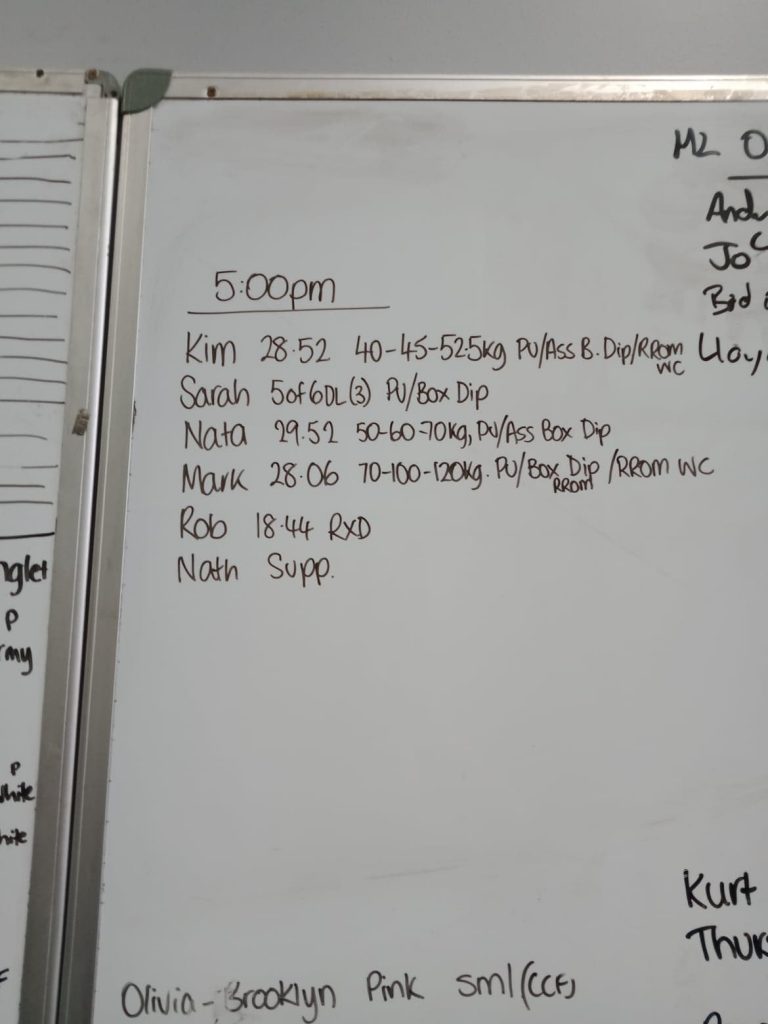 5:00pm
Kim 28.52 40-45-52.5kg PU/Ass B. Dip/RROM WC
Sarah 5 of 6 DL (3) PU/Box Dip
Nata 29.52 50-60-70kg, PU/Ass Box Dip
Mark 28.06 70-100-120kg. PU/Box Dip RROM /RROM WC
Rob 18.44 RXD
Nath Supp.
Olivia - Brooklyn Pink sml (CCF)
M2
Jo
Kurt
P
P